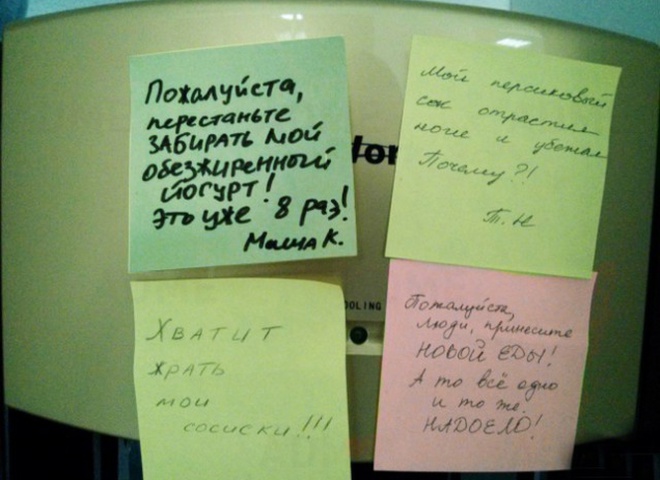 Пожалуйста,
перестаньте
ЗАБИРАТЬ МОЙ
обезжиренный
йогурт!
Это уже 8 раз!
Маша К.
Мой персиковый
сок отрастил
ноги и убежал
Почему?!
Т.Н
ХВАТИТ
ЖРАТЬ
МОИ
СОСИСКИ!!!
OOLING
Пожалуйста,
люди, принесите
НОВОЙ ЕДЫ!
А то всё одно
и то же.
НАДОЕЛО!